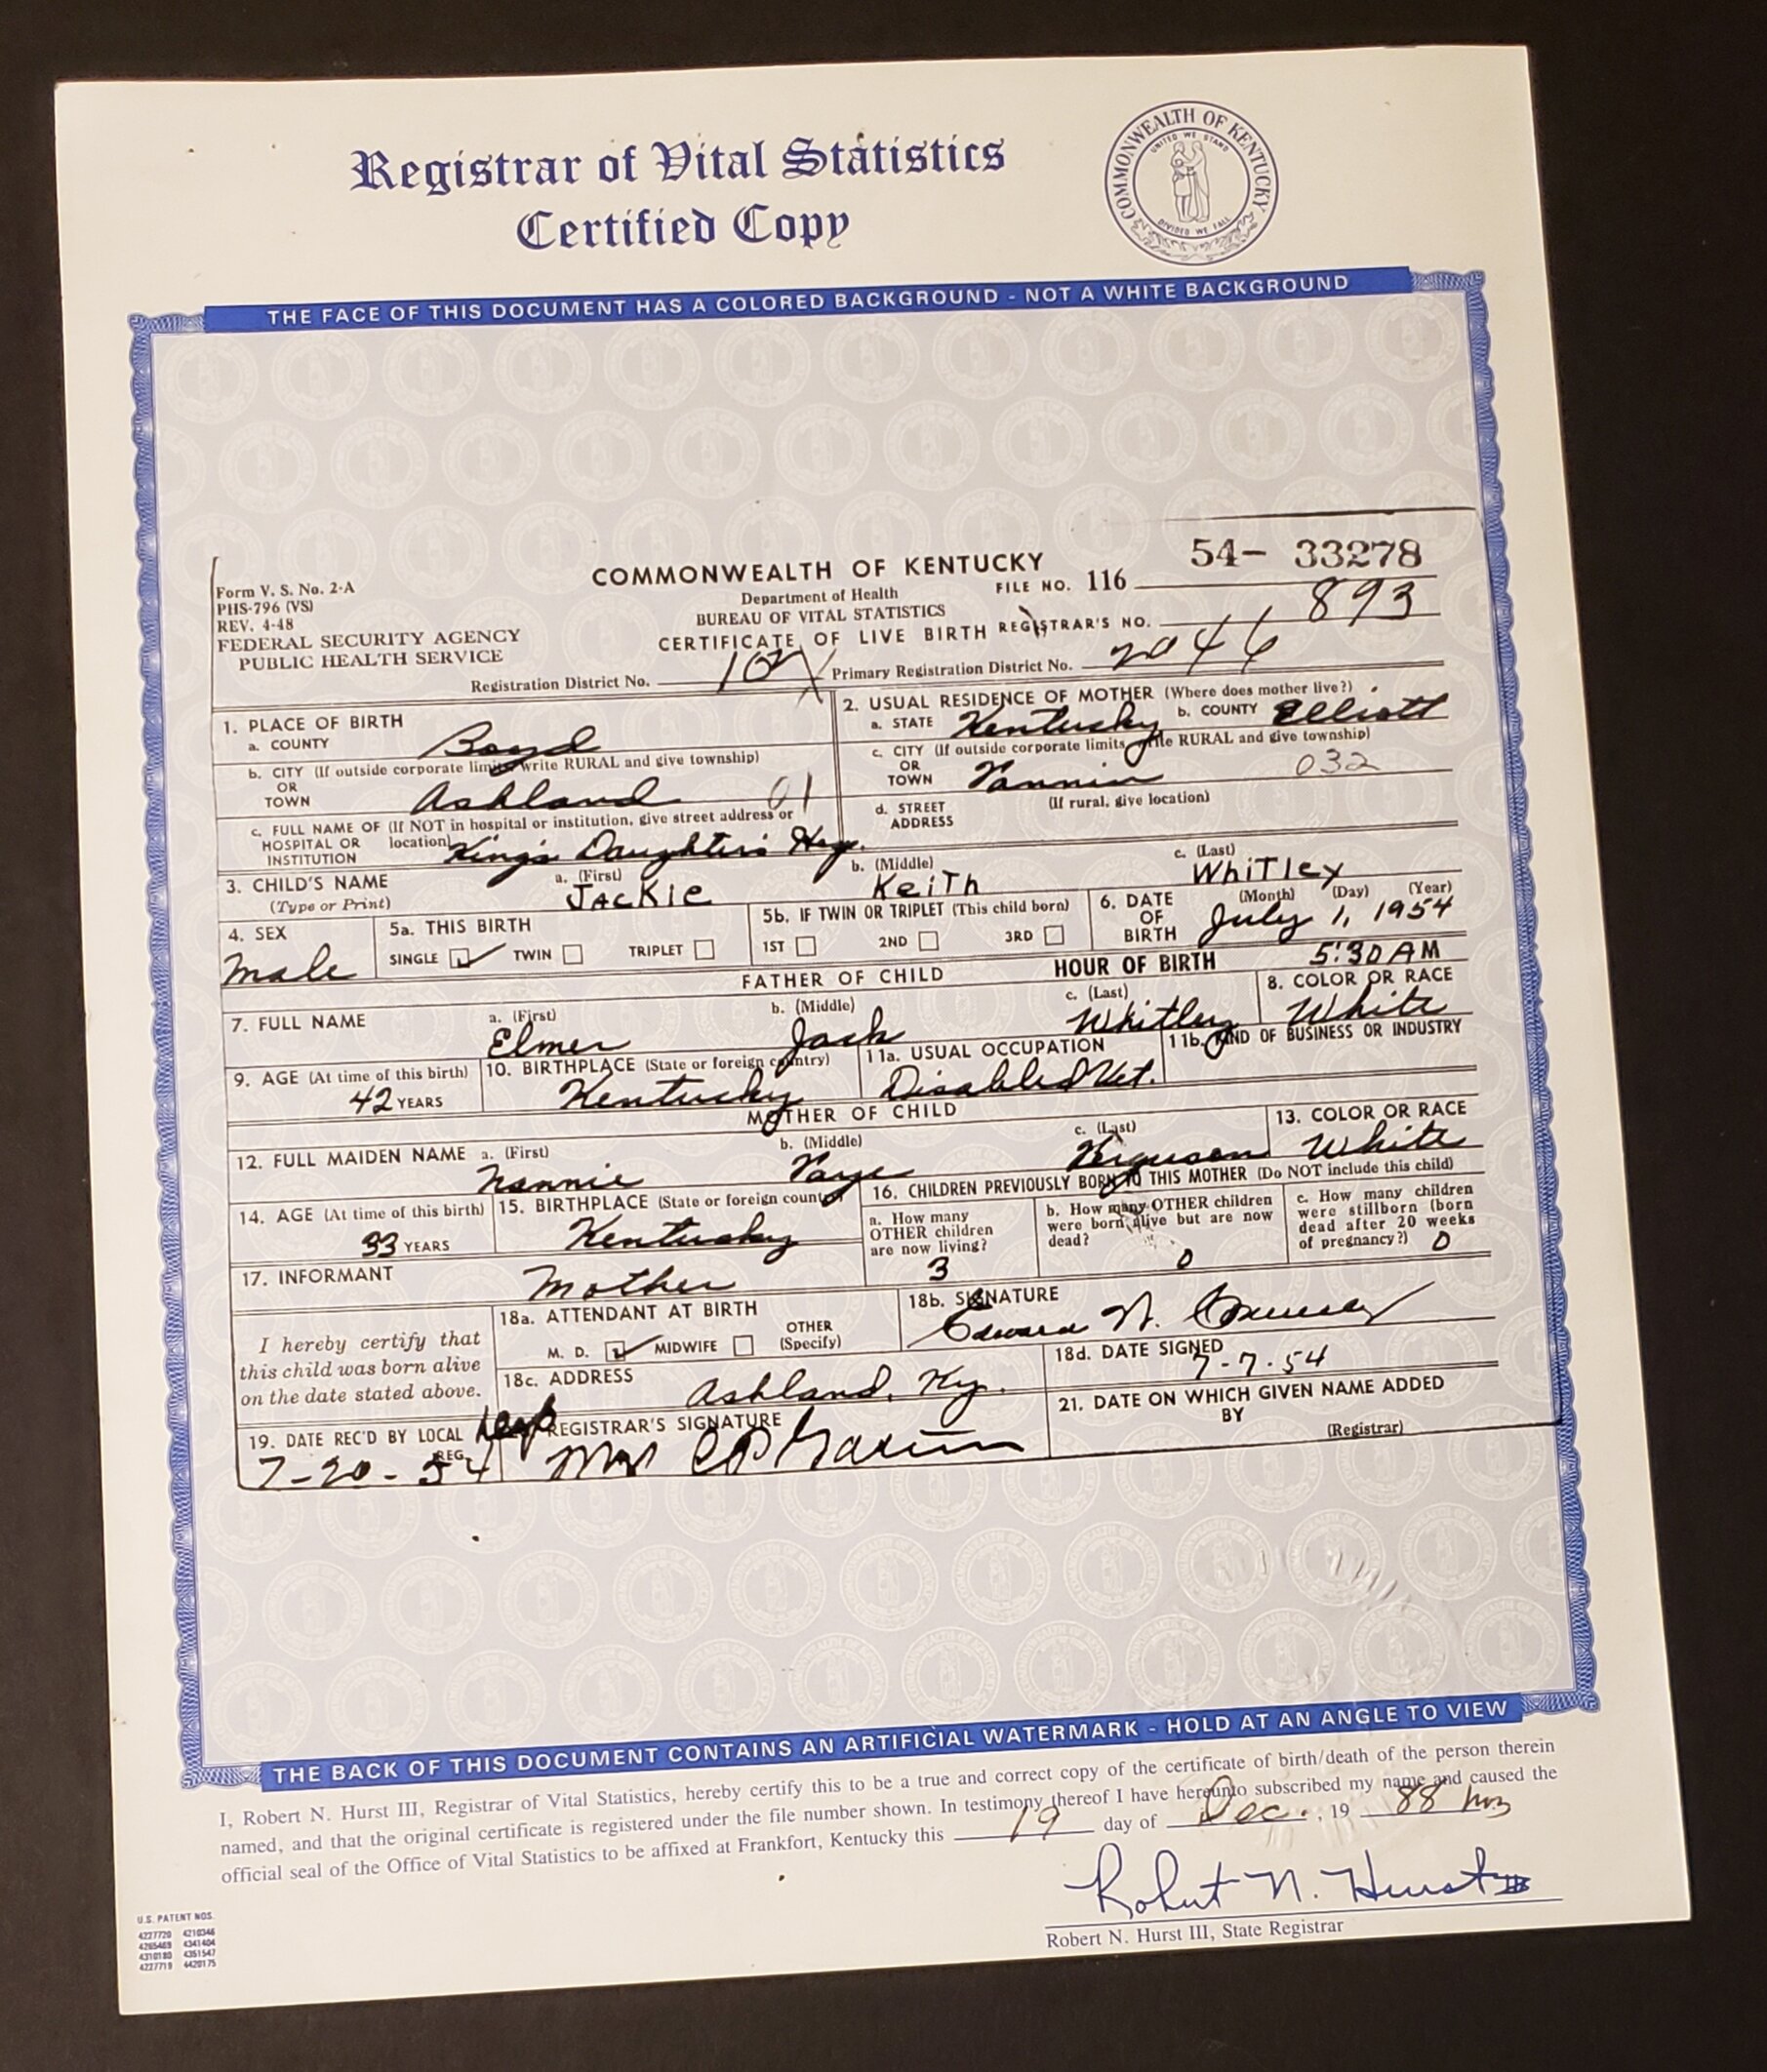 Registrar of Vital Statistics
Certified Copy
COMMONWEALTH OF KENTUCKY
UNITED WE STAND
DIVIDED WE FALL
THE FACE OF THIS DOCUMENT HAS A COLORED BACKGROUND - NOT A WHITE BACKGROUND
Form V. S. No. 2-A
PHS-796 (VS)
REV. 4-48
FEDERAL SECURITY AGENCY
PUBLIC HEALTH SERVICE
COMMONWEALTH OF KENTUCKY
Department of Health
BUREAU OF VITAL STATISTICS
CERTIFICATE OF LIVE BIRTH
FILE NO. 116 54- 33278
REGISTRAR'S NO. 893
Registration District No. 102 Primary Registration District No. 2046
1. PLACE OF BIRTH
a. COUNTY Boyd
b. CITY (If outside corporate limits, write RURAL and give township)
OR
TOWN Ashland 01
c. FULL NAME OF (If NOT in hospital or institution, give street address or
HOSPITAL OR location)
INSTITUTION King's Daughter's
2. USUAL RESIDENCE OF MOTHER (Where does mother live?)
a. STATE Kentucky b. COUNTY Elliott
c. CITY (If outside corporate limits, write RURAL and give township)
OR
TOWN 032
d. STREET (If rural, give location)
ADDRESS
3. CHILD'S NAME
(Type or Print)
a. (First) JACKIE b. (Middle) KeiTh c. (Last) WhiTley
4. SEX
Male
5a. THIS BIRTH
SINGLE TWIN TRIPLET
5b. IF TWIN OR TRIPLET (This child born)
1ST 2ND 3RD
6. DATE (Month) (Day) (Year)
OF
BIRTH July 1, 1954
FATHER OF CHILD HOUR OF BIRTH 5:30 AM
7. FULL NAME a. (First) Elmer b. (Middle) Jack c. (Last) Whitley
8. COLOR OR RACE
White
9. AGE (At time of this birth)
42 YEARS
10. BIRTHPLACE (State or foreign country)
Kentucky
11a. USUAL OCCUPATION
Disabled Vet.
11b. KIND OF BUSINESS OR INDUSTRY
MOTHER OF CHILD
12. FULL MAIDEN NAME a. (First) Nannie b. (Middle) Faye c. (Last) Ferguson
13. COLOR OR RACE
White
14. AGE (At time of this birth)
33 YEARS
15. BIRTHPLACE (State or foreign country)
Kentucky
16. CHILDREN PREVIOUSLY BORN TO THIS MOTHER (Do NOT include this child)
a. How many
OTHER children
are now living?
3
b. How many OTHER children
were born alive but are now
dead?
0
c. How many children
were stillborn (born
dead after 20 weeks
of pregnancy?) 0
17. INFORMANT Mother
I hereby certify that
this child was born alive
on the date stated above.
18a. ATTENDANT AT BIRTH
M. D. MIDWIFE OTHER
(Specify)
18b. SIGNATURE
Edward N.
18c. ADDRESS
Ashland, Ky.
18d. DATE SIGNED
7-7-54
19. DATE REC'D BY LOCAL
REG.
7-20-54
REGISTRAR'S SIGNATURE
Mrs
21. DATE ON WHICH GIVEN NAME ADDED
BY
(Registrar)
THE BACK OF THIS DOCUMENT CONTAINS AN ARTIFICIAL WATERMARK - HOLD AT AN ANGLE TO VIEW
I, Robert N. Hurst III, Registrar of Vital Statistics, hereby certify this to be a true and correct copy of the certificate of birth/death of the person therein
named, and that the original certificate is registered under the file number shown. In testimony thereof I have hereunto subscribed my name and caused the
official seal of the Office of Vital Statistics to be affixed at Frankfort, Kentucky this 19 day of Dec., 19 88
Robert N. Hurst III
Robert N. Hurst III, State Registrar
U.S. PATENT NOS.
4227720 4210346
4265469 4341404
4310180 4351547
4227719 4420175